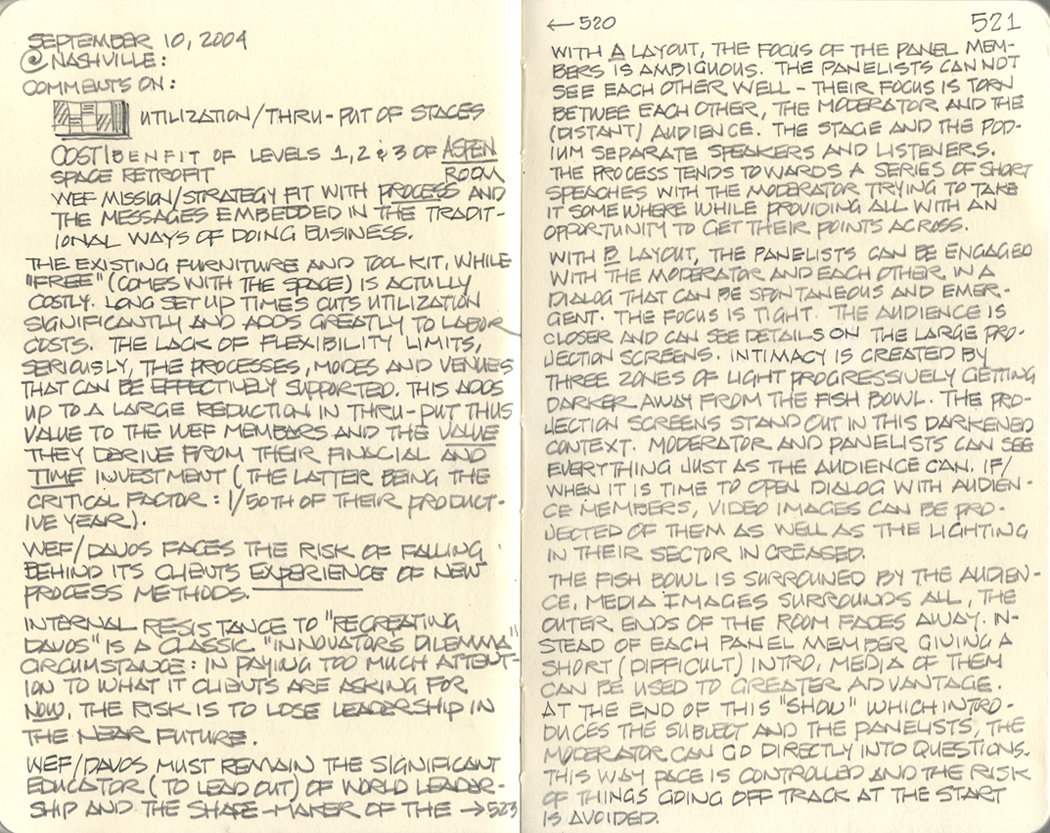 SEPTEMBER 10, 2004
@ NASHVILLE:
COMMENTS ON:
UTILIZATION/THRU-PUT OF STACES
COST|BENFIT OF LEVELS 1, 2 & 3 OF ASPEN
SPACE RETROFIT ROOM
WEF MISSION/STRATEGY FIT WITH PROCESS AND
THE MESSAGES EMBEDDED IN THE TRADIT-
IONAL WAYS OF DOING BUSINESS.
THE EXISTING FURNITURE AND TOOL KIT, WHILE
"FREE" (COMES WITH THE SPACE) IS ACTUILY
COSTLY. LONG SET UP TIMES CUTS UTILIZATION
SIGNIFICANTLY AND ADDS GREATLY TO LABOR
COSTS. THE LACK OF FLEXIBILITY LIMITS,
SERIOUSLY, THE PROCESSES, MODES AND VENUES
THAT CAN BE EFFECTIVELY SUPPORTED. THIS ADDS
UP TO A LARGE REDUCTION IN THRU-PUT THUS
VALUE TO THE WEF MEMBARS AND THE VALUE
THEY DERIVE FROM THEIR FINACIAL AND
TIME INVESTMENT (THE LATTER BEING THE
CRITICAL FACTOR: 1/50TH OF THEIR PRODUCT-
IVE YEAR).
WEF/DAVOS FACES THE RISK OF FALLING
BEHIND ITS CLIENTS EXPERIENCE OF NEW
PROCESS METHODS.
INTERNAL RESISTANCE TO "RECREATING
DAVOS" IS A CLASSIC "INNOVATORS DILEMMA"
CIRCUMSTANCE: IN PAYING TOO MUCH ATTENT-
ION TO WHAT IT CLIENTS ARE ASKING FOR
NOW, THE RISK IS TO LOSE LEADERSHIP IN
THE NEAR FUTURE.
WEF/DAVOS MUST REMAIN THE SIGNIFICANT
EDUCATOR (TO LEAD OUT) OF WORLD LEADER-
SHIP AND THE SHAPE-MAKER OF THE → 523
← 520
521
WITH A LAYOUT, THE FOCUS OF THE PANEL MEM-
BERS IS AMBIGUOUS. THE PANELISTS CAN NOT
SEE EACH OTHER WELL - THEIR FOCUS IS TORN
BETWEE EACH OTHER, THE MODERATOR AND THE
(DISTANT) AUDIENCE. THE STAGE AND THE POD-
IUM SEPARATE SPEAKERS AND LISTENERS.
THE PROCESS TENDS TOWARDS A SERIES OF SHORT
SPEACHES WITH THE MODERATOR TRYING TO TAKE
IT SOME WHERE WHILE PROVIDING ALL WITH AN
OPPORTUNITY TO GET THEIR POINTS ACROSS.
WITH B LAYOUT, THE PANELISTS CAN BE ENGAGED
WITH THE MODERATOR AND EACH OTHER IN A
DIALOG THAT CAN BE SPONTANEOUS AND EMER-
GENT. THE FOCUS IS TIGHT. THE AUDIENCE IS
CLOSER AND CAN SEE DETAILS ON THE LARGE PRO-
JECTION SCREENS. INTIMACY IS CREATED BY
THREE ZONES OF LIGHT PROGRESSIVELY GETTING
DARKER AWAY FROM THE FISH BOWL. THE PRO-
JECTION SCREENS STAND OUT IN THIS DARKENED
CONTEXT. MODERATOR AND PANELISTS CAN SEE
EVERYTHING JUST AS THE AUDIENCE CAN. IF/
WHEN IT IS TIME TO OPEN DIALOG WITH AUDIEN-
CE MEMBERS, VIDEO IMAGES CAN BE PRO-
JECTED OF THEM AS WELL AS THE LIGHTING
IN THEIR SECTOR INCREASED.
THE FISH BOWL IS SURROUNED BY THE AUDIEN-
CE, MEDIA IMAGES SURROUNDS ALL, THE
OUTER ENDS OF THE ROOM FACES AWAY. IN-
STEAD OF EACH PANEL MEMBER GIVING A
SHORT (DIFFICULT) INTRO, MEDIA OF THEM
CAN BE USED TO GREATER ADVANTAGE.
AT THE END OF THIS "SHOW" WHICH INTRO-
DUCES THE SUBJECT AND THE PANELISTS, THE
MODERATOR CAN GO DIRECTLY INTO QUESTIONS.
THIS WAY PACE IS CONTROLLED AND THE RISK
OF THINGS GOING OFF TRACK AT THE START
IS AVOIDED.